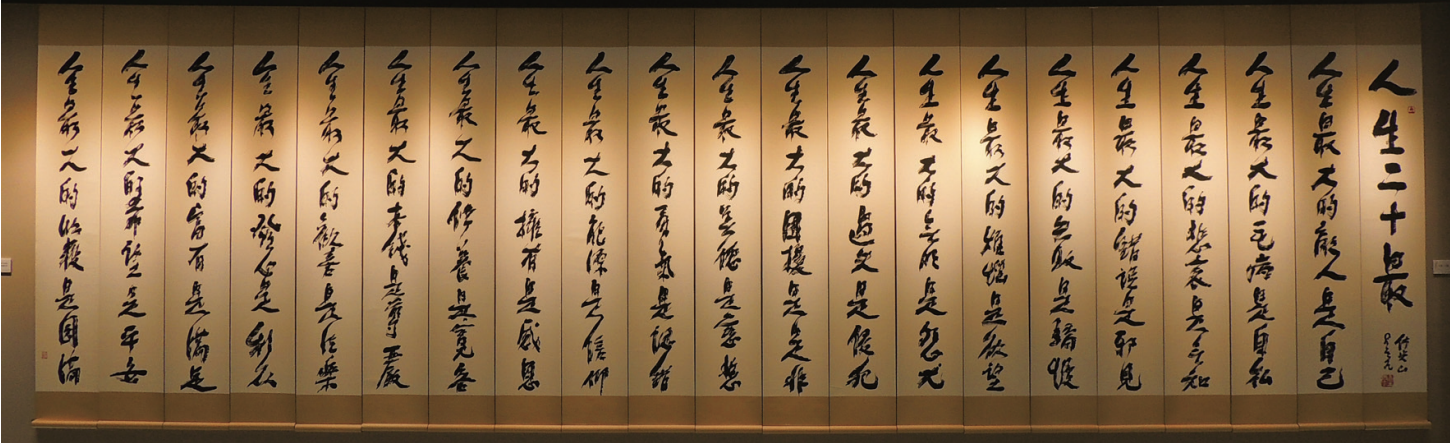 人生二十最
佛光山
星雲
人生最大的敵人是自己
人生最大的毛病是自私
人生最大的悲哀是無知
人生最大的錯誤是邪見
人生最大的失敗是驕慢
人生最大的煩惱是欲望
人生最大的無明是怨尤
人生最大的過失是侵犯
人生最大的困擾是是非
人生最大的美德是慈悲
人生最大的勇氣是認錯
人生最大的能源是信仰
人生最大的擁有是感恩
人生最大的修養是寬容
人生最大的本錢是尊嚴
人生最大的歡喜是法樂
人生最大的發心是利眾
人生最大的富有是滿足
人生最大的希望是平安
人生最大的收穫是圓滿